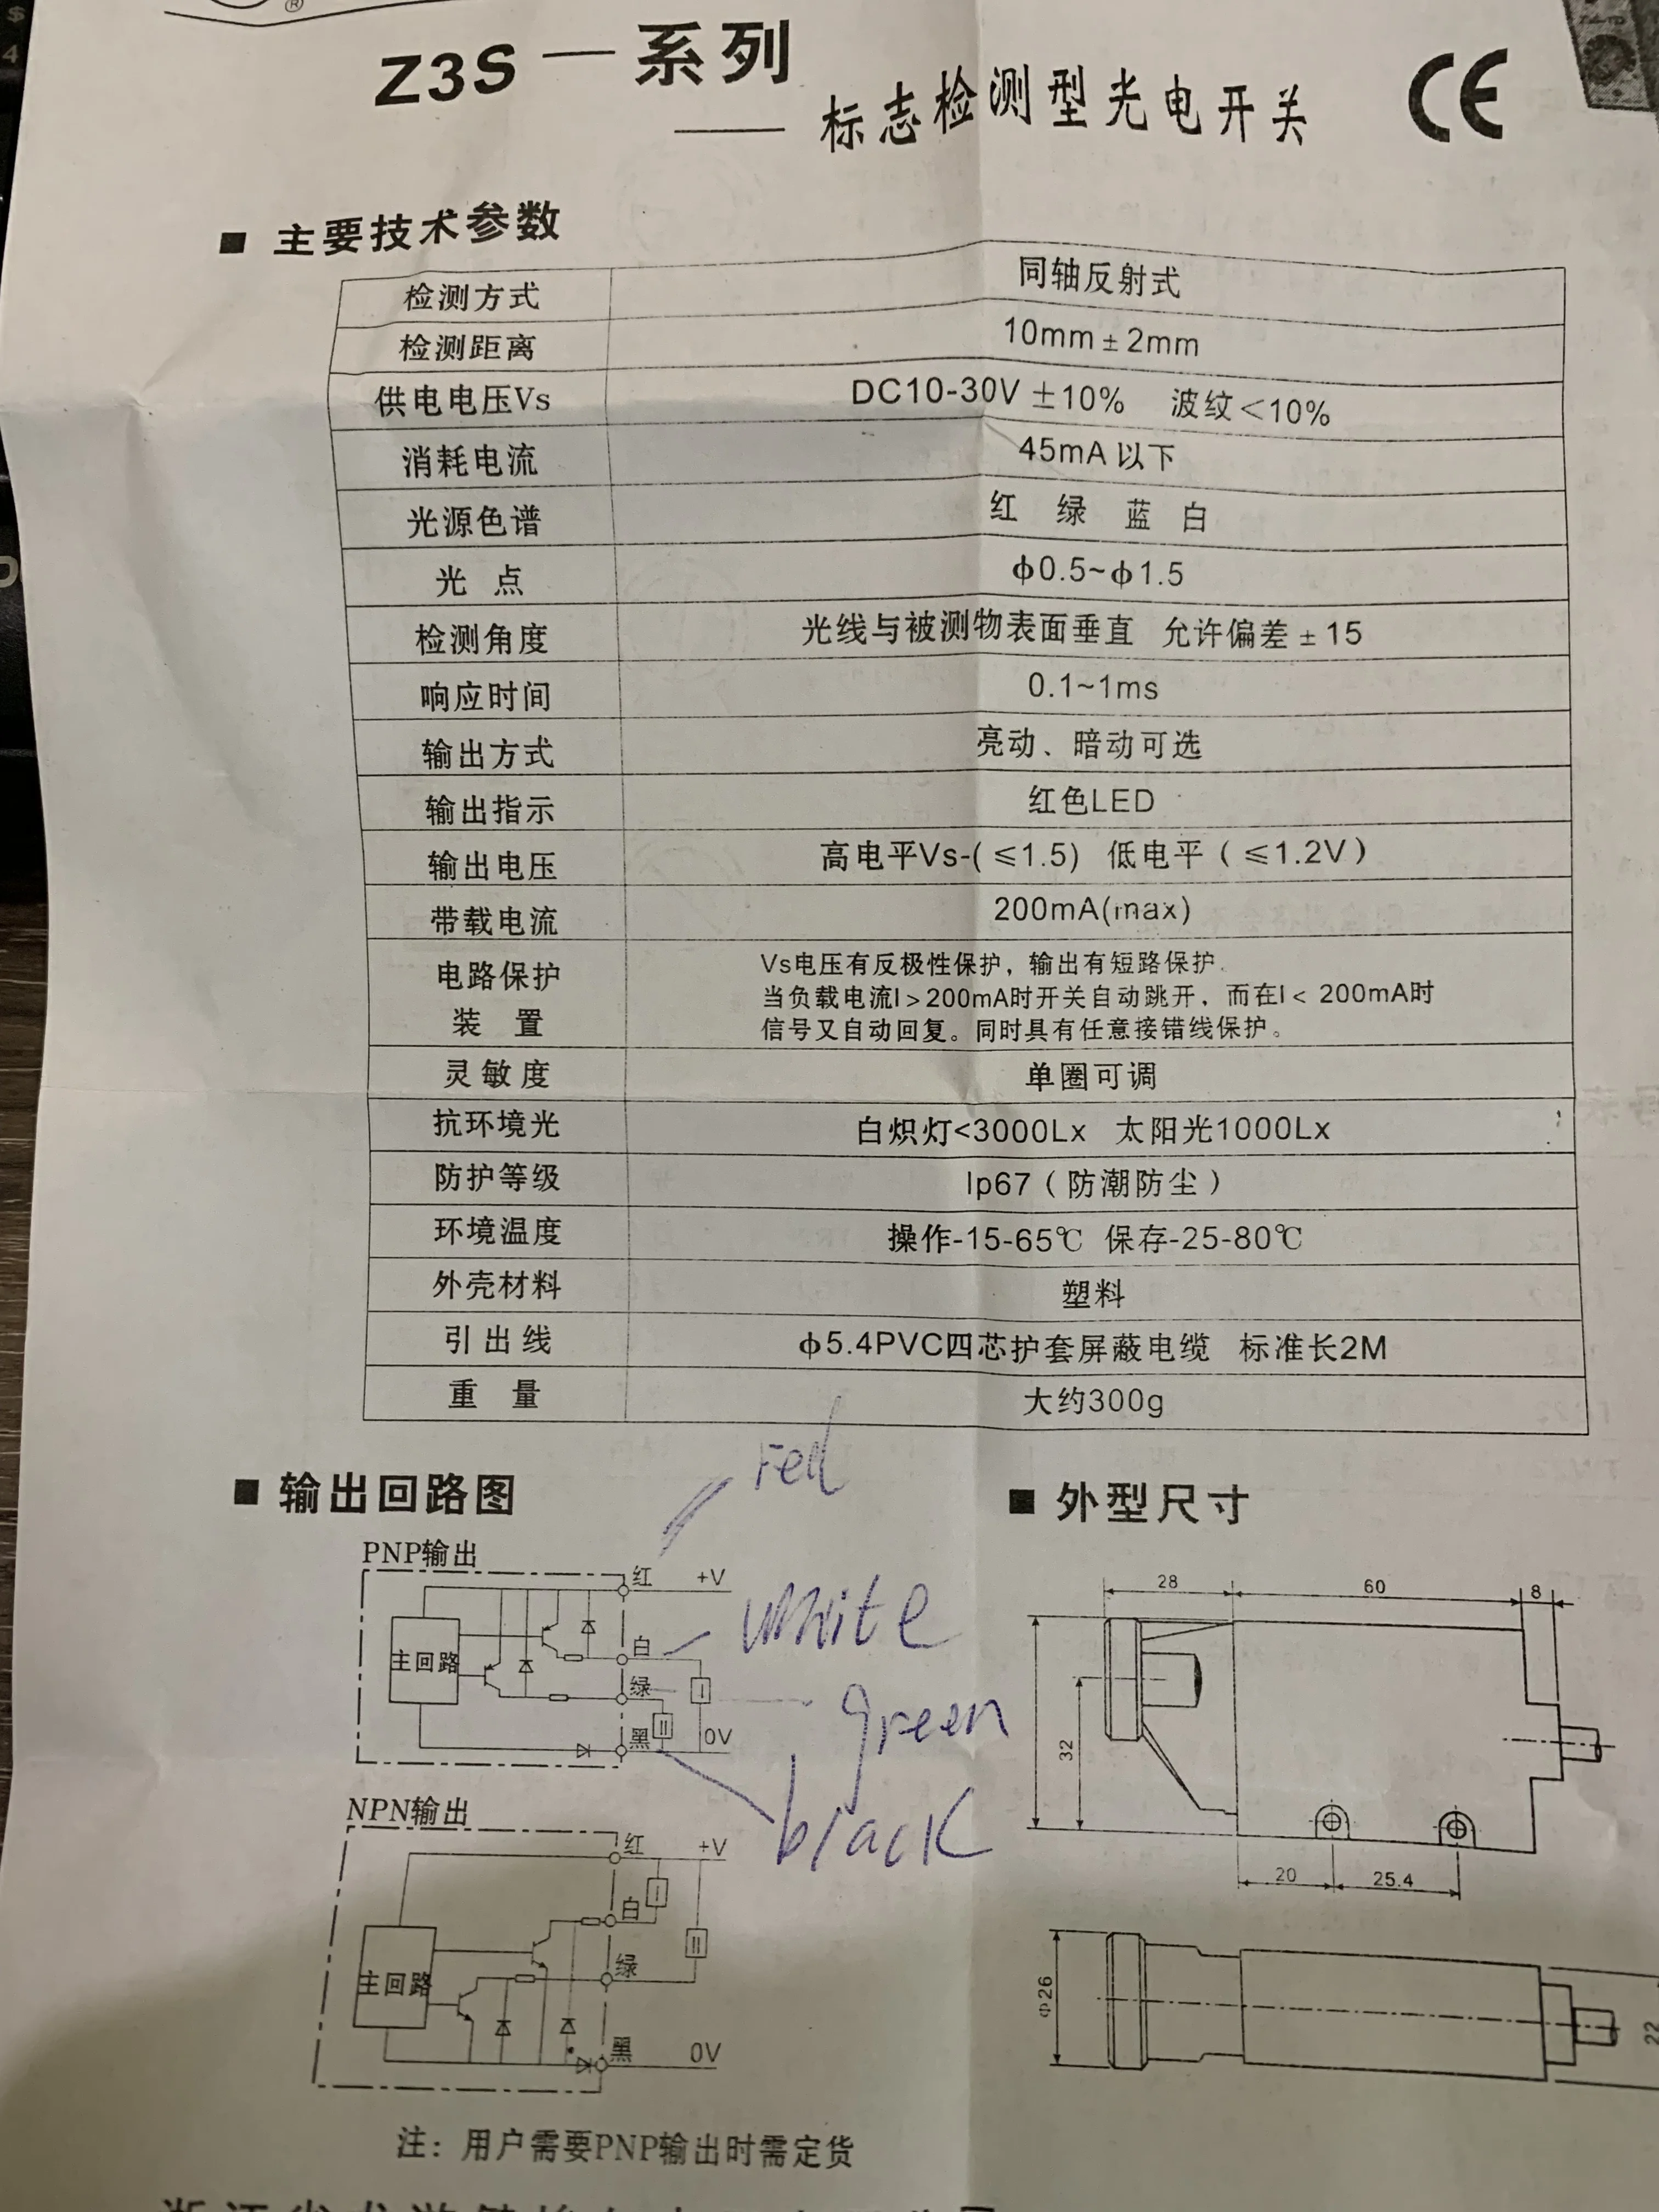 ®
Z3S — 系列
—— 标志检测型光电开关
CE
■ 主要技术参数
检测方式 同轴反射式
检测距离 10mm ± 2mm
供电电压Vs DC10-30V ±10% 波纹<10%
消耗电流 45mA 以下
光源色谱 红 绿 蓝 白
光 点 ф0.5~ф1.5
检测角度 光线与被测物表面垂直 允许偏差 ± 15
响应时间 0.1~1ms
输出方式 亮动、暗动可选
输出指示 红色LED
输出电压 高电平Vs-( ≤1.5) 低电平（ ≤1.2V）
带载电流 200mA(max)
电路保护
装 置
Vs电压有反极性保护，输出有短路保护.
当负载电流I > 200mA时开关自动跳开，而在I < 200mA时
信号又自动回复。同时具有任意接错线保护。
灵敏度 单圈可调
抗环境光 白炽灯<3000Lx 太阳光1000Lx
防护等级 Ip67（防潮防尘）
环境温度 操作-15-65℃ 保存-25-80℃
外壳材料 塑料
引出线 ф5.4PVC四芯护套屏蔽电缆 标准长2M
重 量 大约300g
■ 输出回路图
red
PNP输出
红 +V
白
white
主回路
绿
green
I
II
黑 0V
black
NPN输出
红 +V
I
白
II
绿
主回路
黑 0V
注：用户需要PNP输出时需定货
■ 外型尺寸
28 60 8
32
20 25.4
Ф26
22